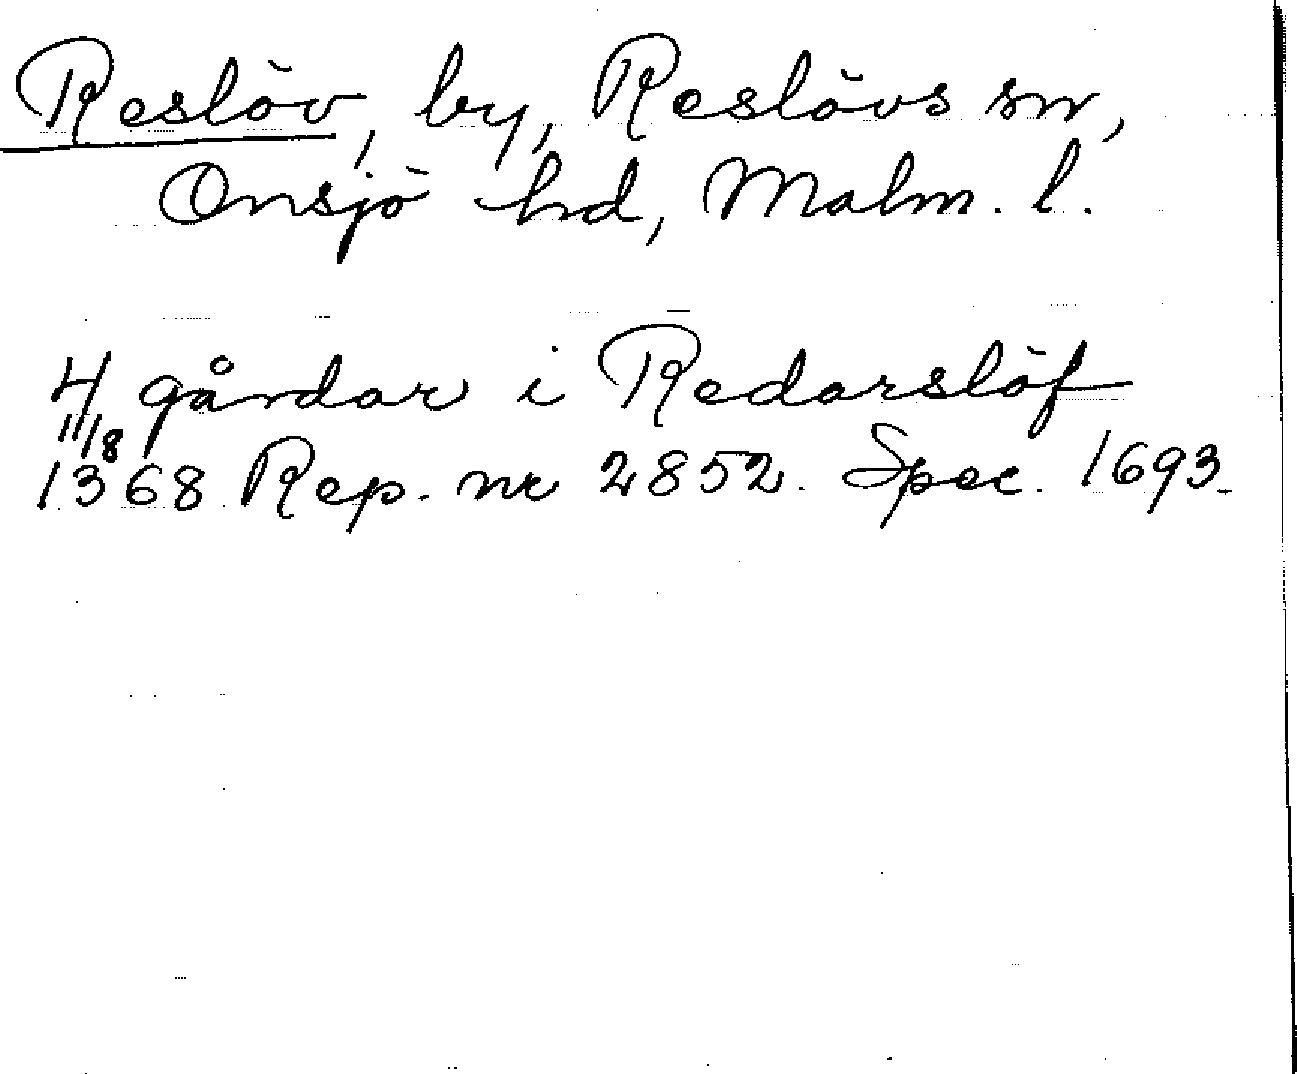 Reslöv, by, Reslövs sn,
Onsjö hd, Malm. l.
4 gårdar i Redarslöf
11/8
1368 Rep. nr 2852. Spec. 1693.